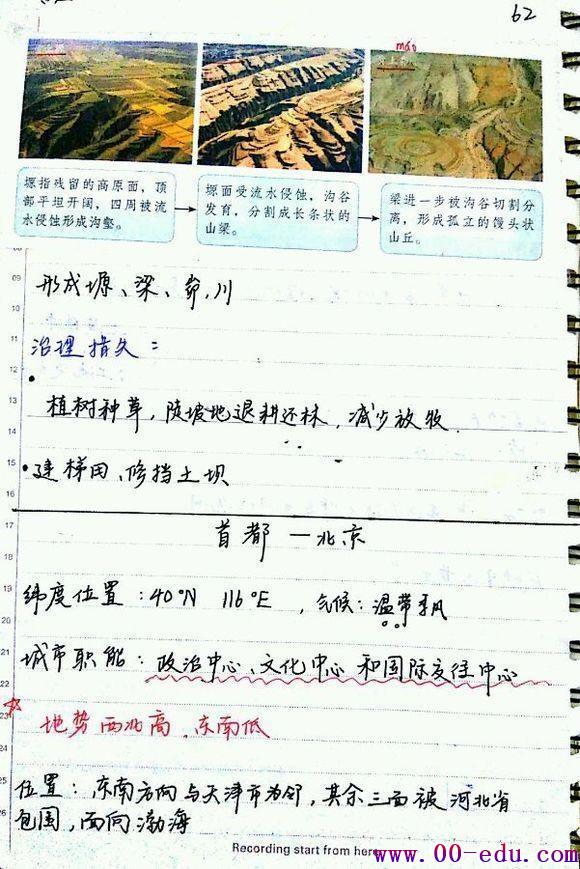 62
máo
塬指残留的高原面，顶
部平坦开阔，四周被流
水侵蚀形成沟壑。
塬面受流水侵蚀，沟谷
发育，分割成长条状的
山梁。
梁进一步被沟谷切割分
离，形成孤立的馒头状
山丘。
形成塬、梁、峁，川
治理措久：
植树种草，陡坡地退耕还林，减少放牧.
·建梯田、修挡土坝
首都—北京
纬度位置：40°N 116°E ，气候：温带季风
城市职能：政治中心、文化中心和国际交往中心
地势西北高，东南低
位置：东南方向与天津市为邻，其余三面被河北省
包围，面向渤海
Recording start from here
www.00-edu.com
09
10
11
12
13
14
15
16
17
18
19
20
21
22
23
25
26